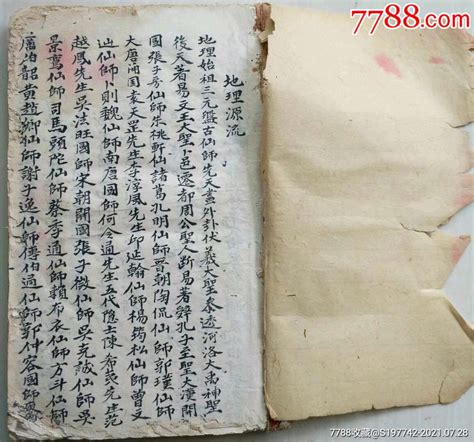 7788.com
地理源流
地理始祖三元盤古仙師先天盖外引伏羲大聖泰透河洛大禹神聖
後天着易文王大聖卜邑遷都周公聖人断易著辞孔子至聖大漢開
國張子房仙師朱桃軒仙諸葛孔明仙師晋朝陶侃仙師郭璞仙師
大唐開国袁天罡先生李淳風先生邱延翰仙師楊筠松仙師曾文
辿仙師卜則魏仙師南唐國師何令通先生五代隐士陳希夷先生范
越鳳先生吳法旺國師宋朝開國張子微仙師吳克誠仙師吳
景鸞仙師司馬頭陀仙師蔡季通仙師賴布衣仙師方斗仙師
唐伯韶黄趙卿仙師謝子逸仙師傅伯通仙師郭仲容國師
7788收藏@S197742-2021.07.28